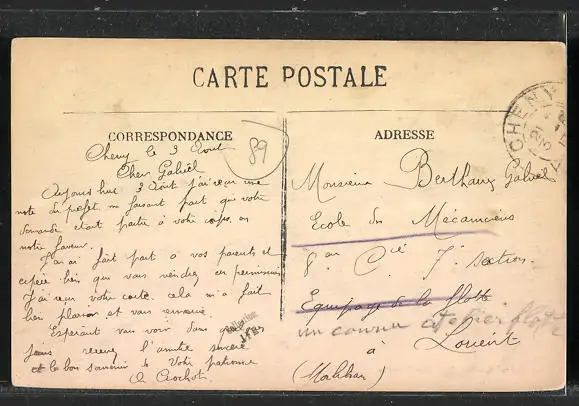 CARTE POSTALE
CORRESPONDANCE
89
Cheny le 3 Août
Cher Gabriel
Aujourd'hui 3 Août j'ai reçu une
note du préfet me faisant part que votre
demande était partie à votre corps, en
votre faveur.
J'en ai fait part à vos parents et
espère bien que vous viendrez en permission
J'ai reçu votre carte. cela m'a fait
bien plaisir et vous remercie.
Espérant vous voir dans
jours recevez l'amitié sincère
et le bon souvenir de Votre patronne
Crochot
ADRESSE
CHENY
Monsieur Berthaux Gabriel
Ecole des Mécaniciens
8 em Cie 7e section
Equipage de la flotte
atelier flotte
à Lorient
(Morbihan)